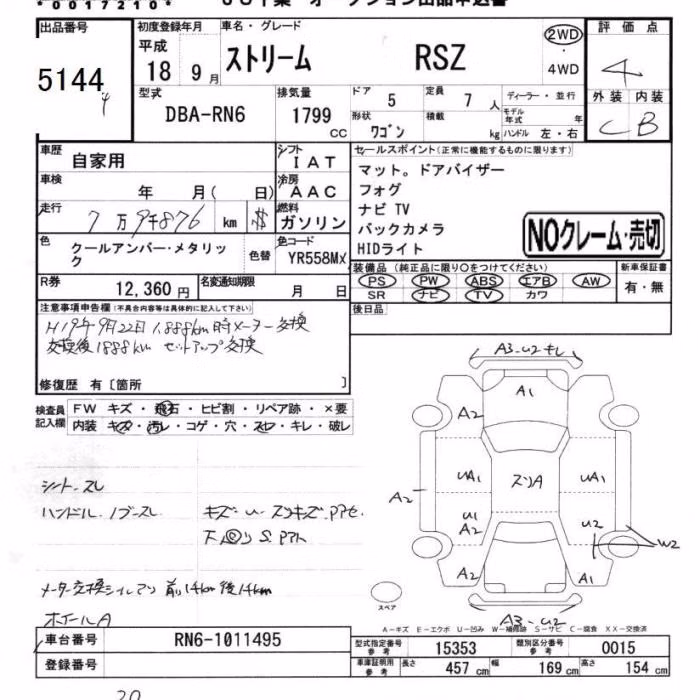 *0017210*
出品番号
5144
初度登録年月
平成
18 9月
車名・グレード
ストリーム RSZ
2WD
4WD
評価点
4
外装 内装
C B
型式
DBA-RN6
排気量
1799 CC
ドア 5
定員 7 人
形状 ワゴン
積載 kg
ディーラー・並行
モデル年式 年
ハンドル 左・右
車歴
自家用
シフト
IAT
車検
年 月( 日)
冷房
AAC
走行
7万9千876 km $
燃料
ガソリン
色
クールアンバー・メタリック
色替
色コード
YR558MX
R券
12,360 円
名変通知期限
月 日
セールスポイント(正常に機能するものに限ります)
マット。ドアバイザー
フォグ
ナビ TV
バックカメラ
HIDライト
NOクレーム・売切
装備品(純正品に限り○をつけてください)
PS PW ABS エアB AW
SR ナビ TV カワ
新車保証書
有・無
後日品
注意事項申告欄(不具合内容等は具体的に記入して下さい)
H19年9月22日 1.888km時メーター交換
交換後1888km セットアップ交換
修復歴 有〔箇所 〕
検査員記入欄
FW キズ・飛石・ヒビ割・リペア跡・×要
内装 キズ・汚レ・コゲ・穴・スレ・キレ・破レ
シート.スレ
ハンドル.ノブースレ
キズ.U.スリキズ.アアセ.
メーター交換シールアリ 前14km後14km
ホイールA
A3.U2モレ
A1
A2
UA1
スリA
UA1
A2
U1
A1
U2
W2
A2
A1
A3-U2
スペア
A-キズ E-エクボ U-凹み W-補修跡 S-サビ C-腐食 XX-交換済
車台番号
RN6-1011495
登録番号
型式指定番号 参考
15353
類別区分番号 参考
0015
車庫証明用 参考
長さ 457 cm
幅 169 cm
高さ 154 cm
20